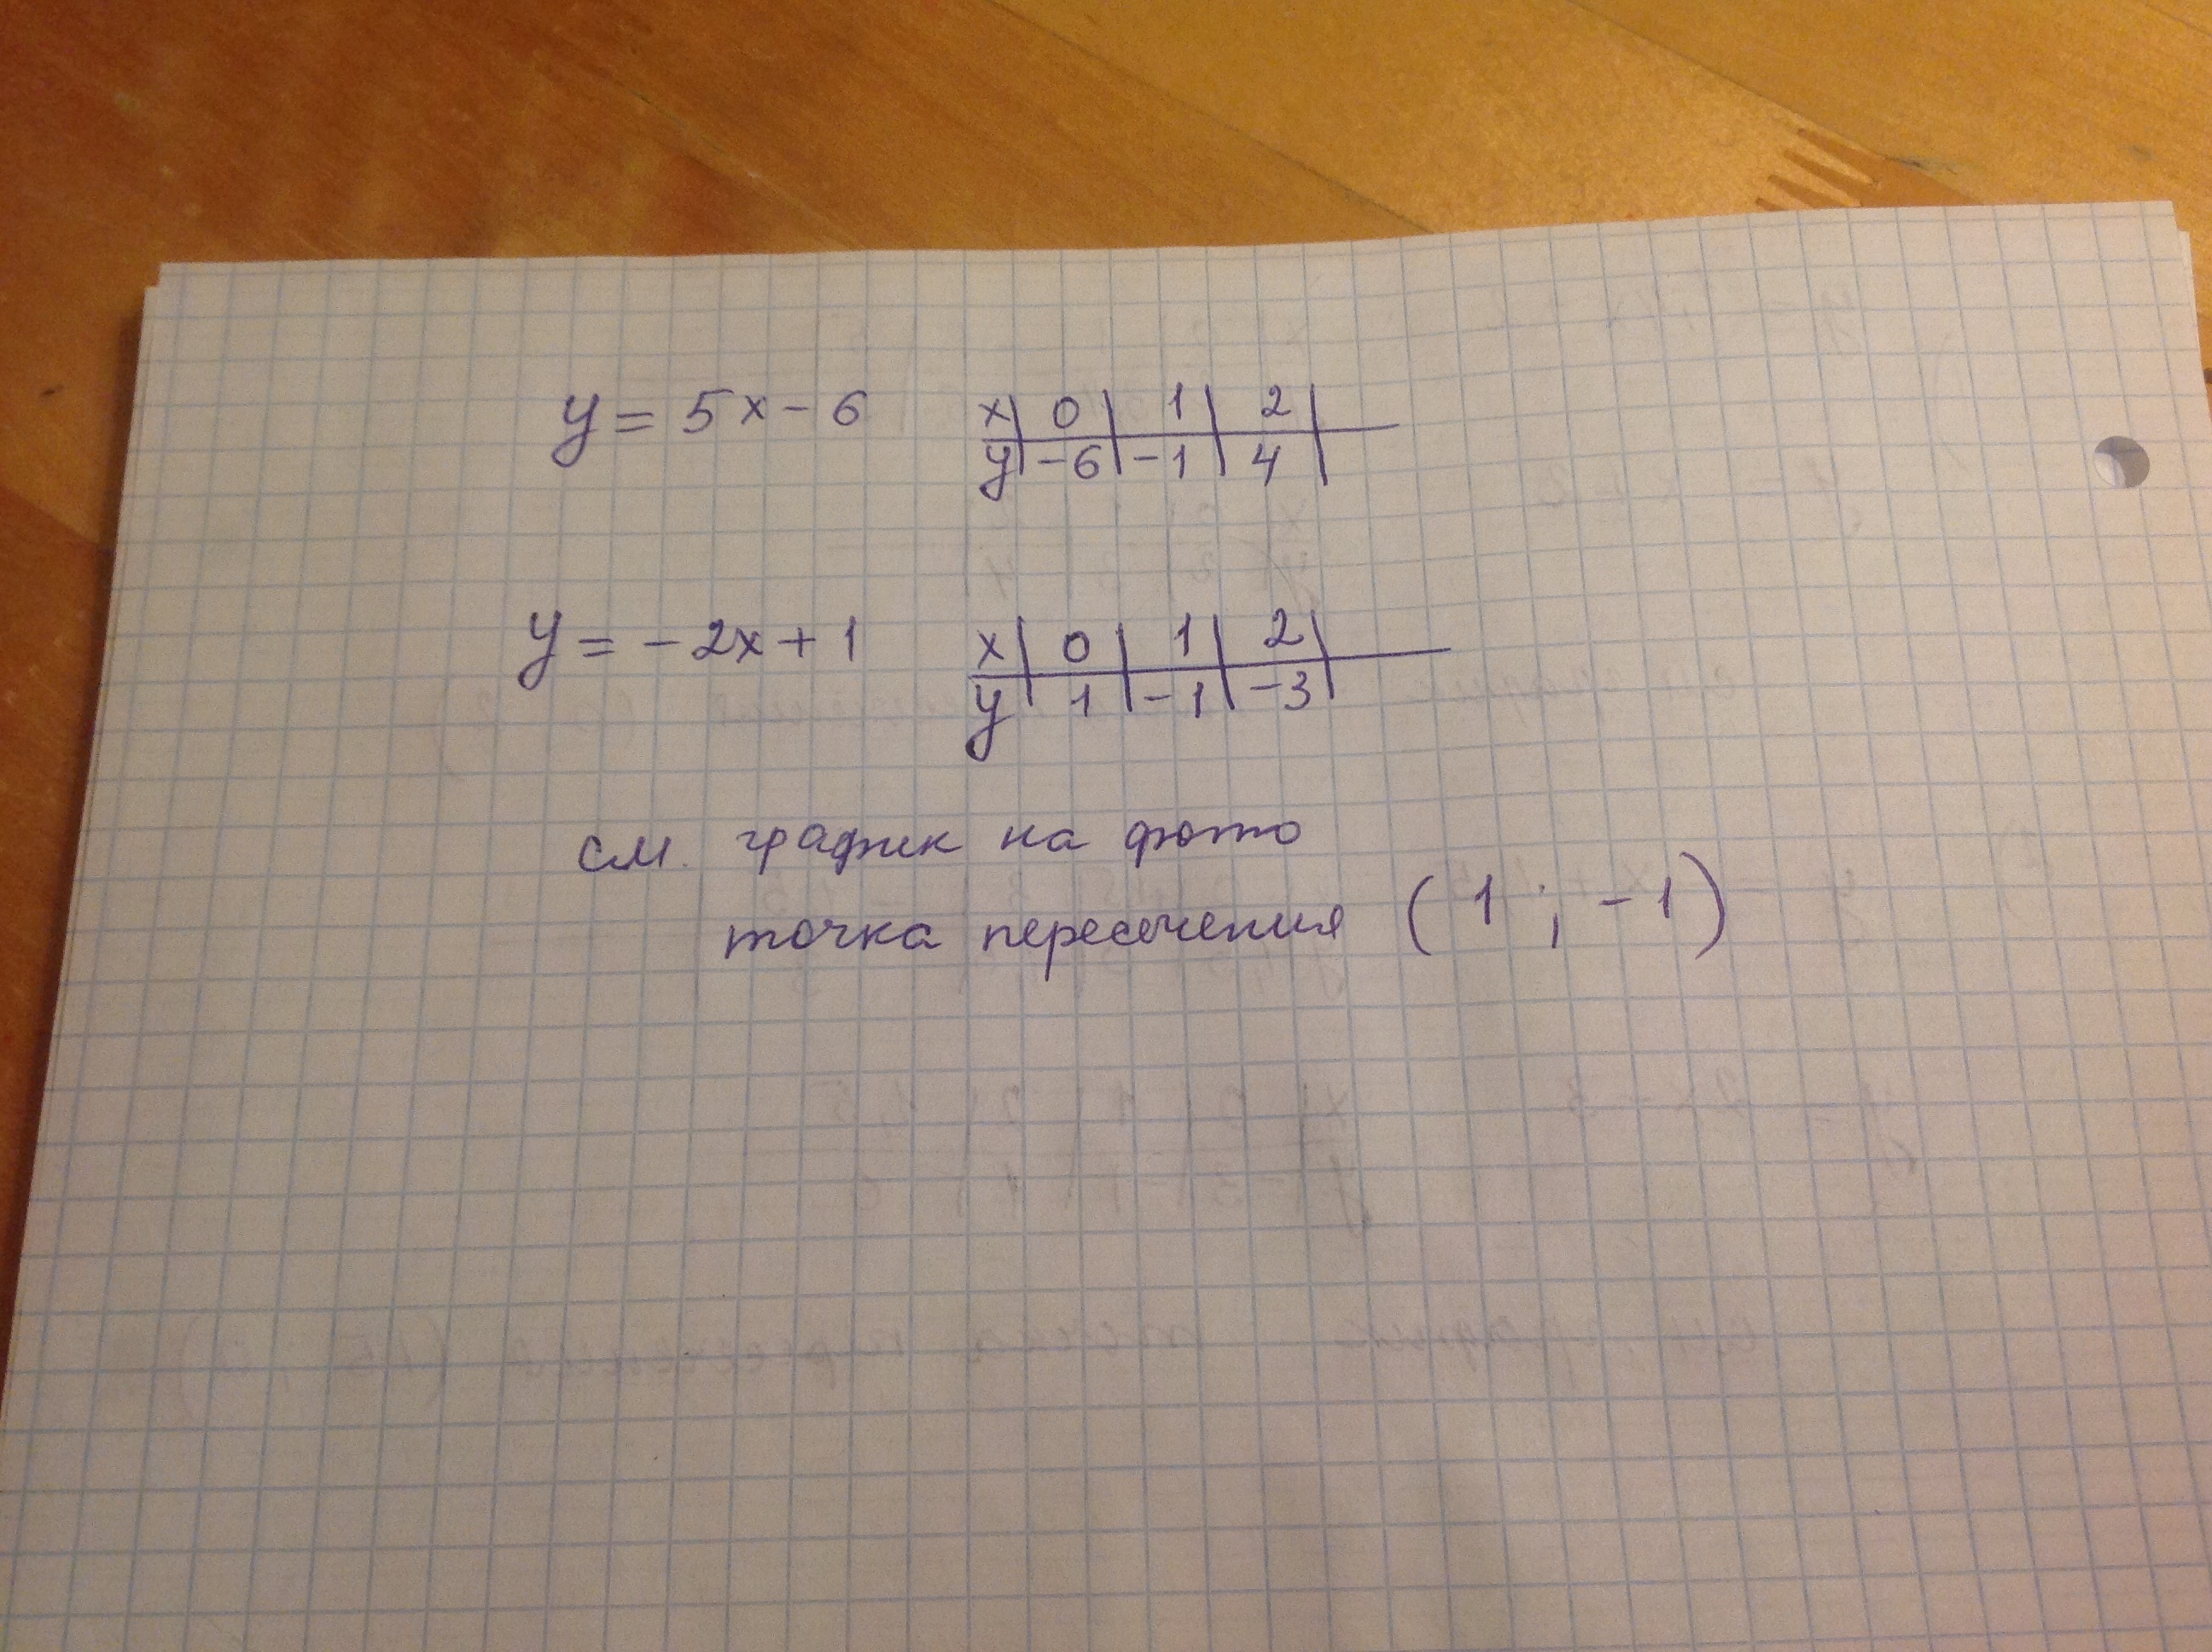 y = 5x - 6 x | 0 | 1 | 2 |
y | -6 | -1 | 4 |
y = -2x + 1 x | 0 | 1 | 2 |
y | 1 | -1 | -3 |
см. график на фото
точка пересечения (1 ; -1)